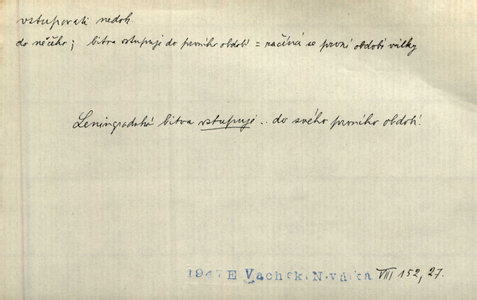 vstupovati nedok.
do něčeho; bitva vstupuje do prvního období = začíná se první období války
Leningradská bitva vstupuje .. do svého prvního období.
194 E Vachek N. válka VIII 152, 27.